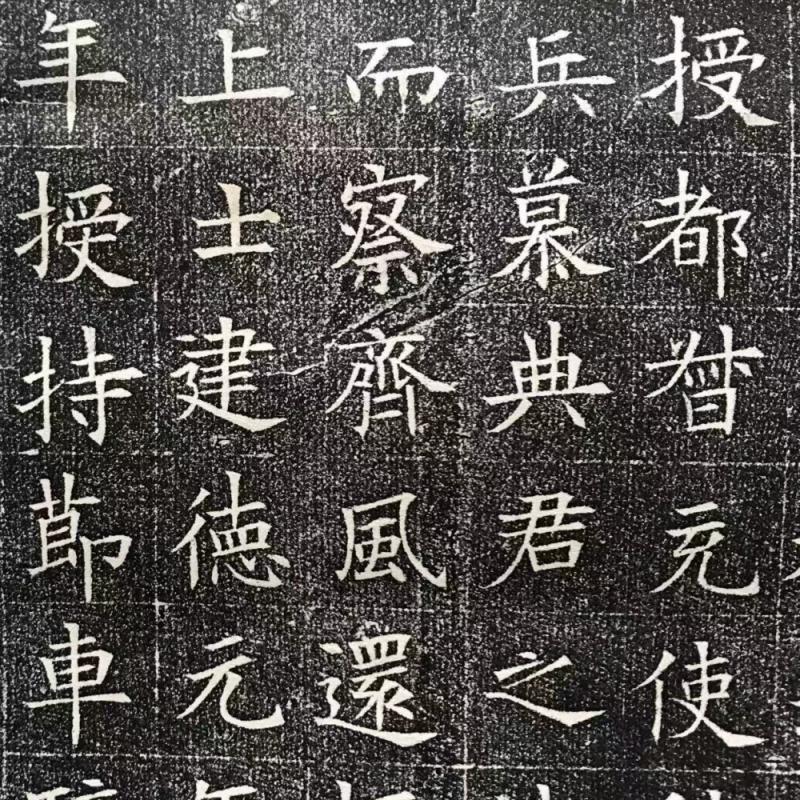 授都督充使
兵慕典君之
而察齊風還
上士建德元年
年授持節車